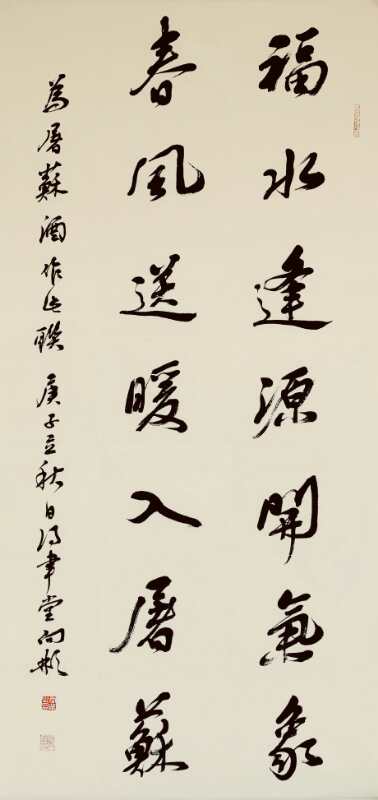 福水逢源開氣象
春風送暖入屠蘇
為屠蘇酒作此聯 庚子立秋日得聿堂向彬